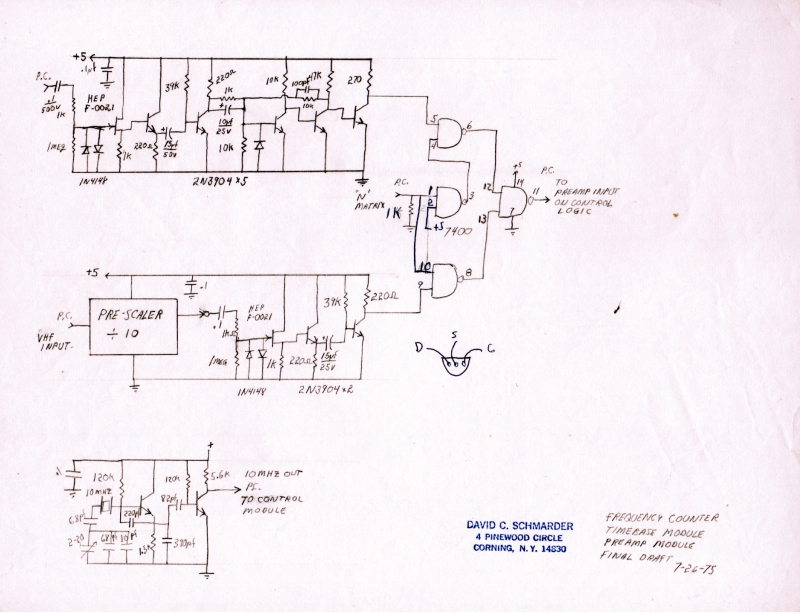 +5
.1µf
P.C.
.1
500V
1K
HEP
F-0021
39K
220Ω
1K
10K
100pf
47K
10K
270
1MEG
1K
220Ω
15µf
50V
10µf
25V
10K
1N4148
2N3904 x 5
5
6
4
"N"
MATRIX
P.C.
1K
1
2
3
+5
7400
+5
14
12
13
11
7
P.C.
TO
PREAMP INPUT
ON CONTROL
LOGIC
10
9
8
+5
.1
P.C.
VHF
INPUT
PRE-SCALER
÷ 10
.1
1K
HEP
F-0021
39K
220Ω
1MEG
1K
220Ω
15µf
25V
1N4148
2N3904 x 2
D
S
G
+
.1
120K
10MHZ
120K
5.6K
10MHZ OUT
P.C.
TO CONTROL
MODULE
6.8pf
220pf
82pf
2-20
68pf
10pf
1.5K
390pf
DAVID C. SCHMARDER
4 PINEWOOD CIRCLE
CORNING, N.Y. 14830
FREQUENCY COUNTER
TIMEBASE MODULE
PREAMP MODULE
FINAL DRAFT
7-26-75